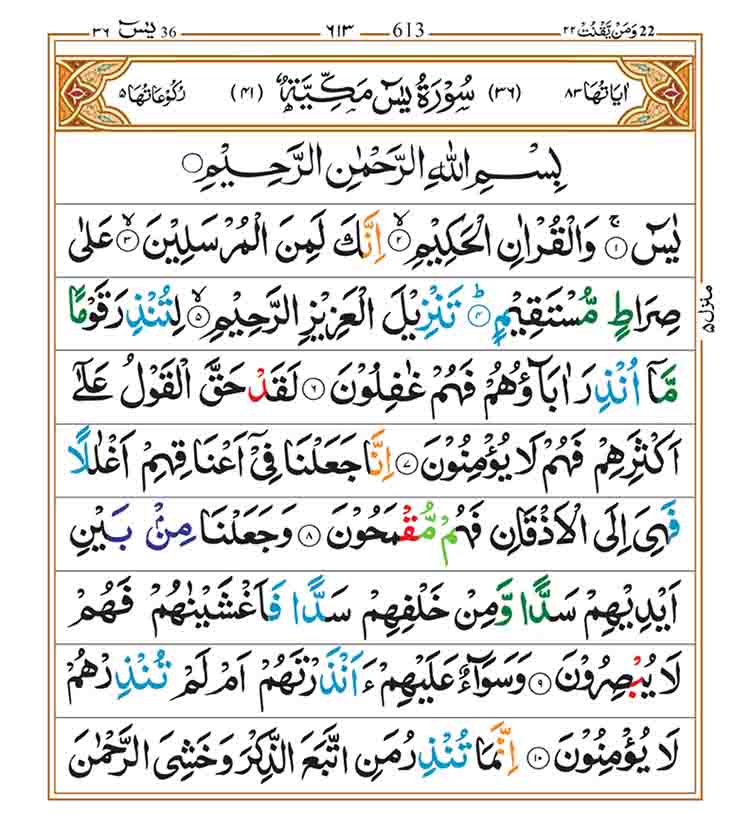 وَمَنْ يَّقْنُتْ ٢٢ 22 613 ٦١٣ يٰسٓ ٣٦ 36
اٰيَاتُهَا ٨٣ (٣٦) سُوْرَةُ يٰسٓ مَكِّيَّةٌ (٤١) رُكُوْعَاتُهَا ٥
بِسْمِ اللهِ الرَّحْمٰنِ الرَّحِيْمِ ○
يٰسٓ ۚ ١ وَالْقُرْاٰنِ الْحَكِيْمِ ۙ ٢ اِنَّكَ لَمِنَ الْمُرْسَلِيْنَ ۙ ٣ عَلٰى
صِرَاطٍ مُّسْتَقِيْمٍ ؕ ٤ تَنْزِيْلَ الْعَزِيْزِ الرَّحِيْمِ ۙ ٥ لِتُنْذِرَ قَوْمًا
مَّاۤ اُنْذِرَ اٰبَآؤُهُمْ فَهُمْ غٰفِلُوْنَ ٦ لَقَدْ حَقَّ الْقَوْلُ عَلٰۤى
اَكْثَرِهِمْ فَهُمْ لَا يُؤْمِنُوْنَ ٧ اِنَّا جَعَلْنَا فِىْۤ اَعْنَاقِهِمْ اَغْلٰلًا
فَهِىَ اِلَى الْاَذْقَانِ فَهُمْ مُّقْمَحُوْنَ ٨ وَجَعَلْنَا مِنْۢ بَيْنِ
اَيْدِيْهِمْ سَدًّا وَّمِنْ خَلْفِهِمْ سَدًّا فَاَغْشَيْنٰهُمْ فَهُمْ
لَا يُبْصِرُوْنَ ٩ وَسَوَآءٌ عَلَيْهِمْ ءَاَنْذَرْتَهُمْ اَمْ لَمْ تُنْذِرْهُمْ
لَا يُؤْمِنُوْنَ ١٠ اِنَّمَا تُنْذِرُ مَنِ اتَّبَعَ الذِّكْرَ وَخَشِىَ الرَّحْمٰنَ
منزل ٥